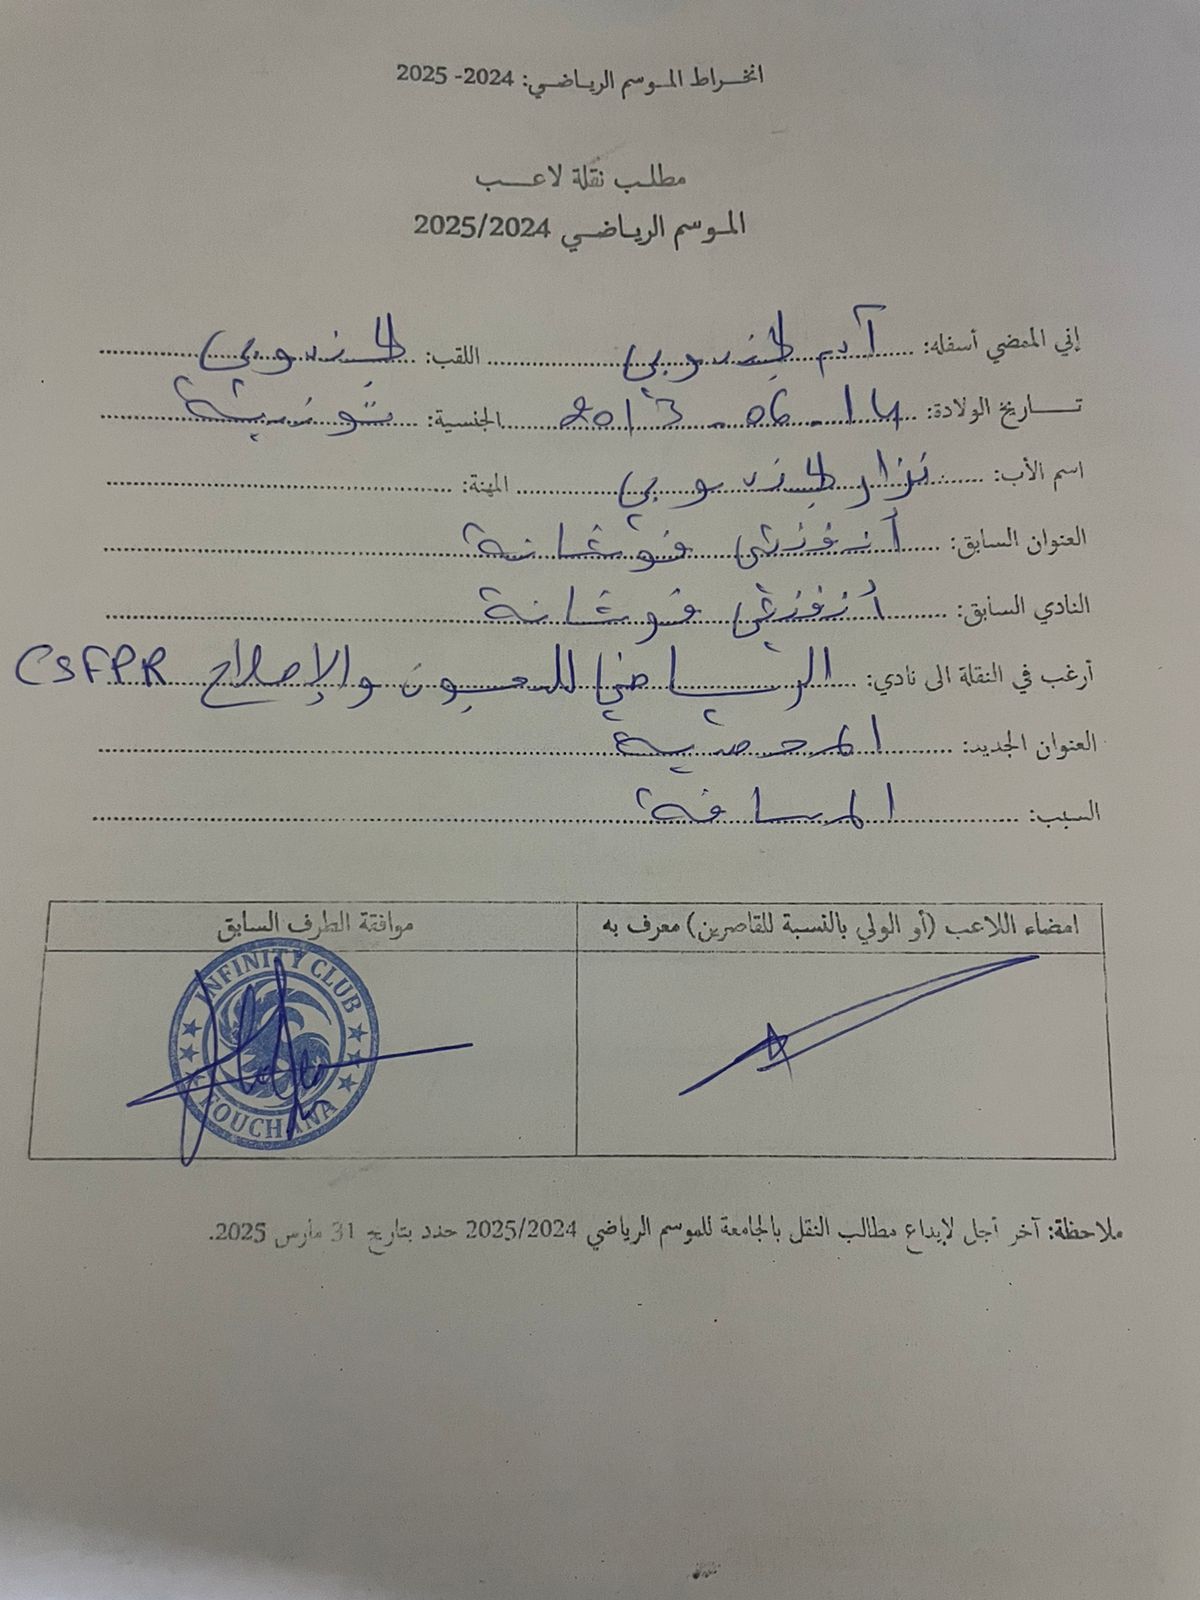 انخراط الموسم الرياضي: 2024- 2025
مطلب نقلة لاعب
الموسم الرياضي 2025/2024
إني الممضي أسفله: آدم الجندوبي اللقب: الجندوبي
تاريخ الولادة: 14 - 06 - 2013 الجنسية: تونسية
اسم الأب: نزار الجندوبي المهنة:
العنوان السابق: أنفنتي فوشانة
النادي السابق: أنفنتي فوشانة
أرغب في النقلة الى نادي: الرياضي للسجون والإصلاح CSFPR
العنوان الجديد: المحمدية
السبب: المسافة
امضاء اللاعب (أو الولي بالنسبة للقاصرين) معرف به
موافقة الطرف السابق
INFINITY CLUB
FOUCHANA
ملاحظة: آخر أجل لإيداع مطالب النقل بالجامعة للموسم الرياضي 2025/2024 حدد بتاريخ 31 مارس 2025.